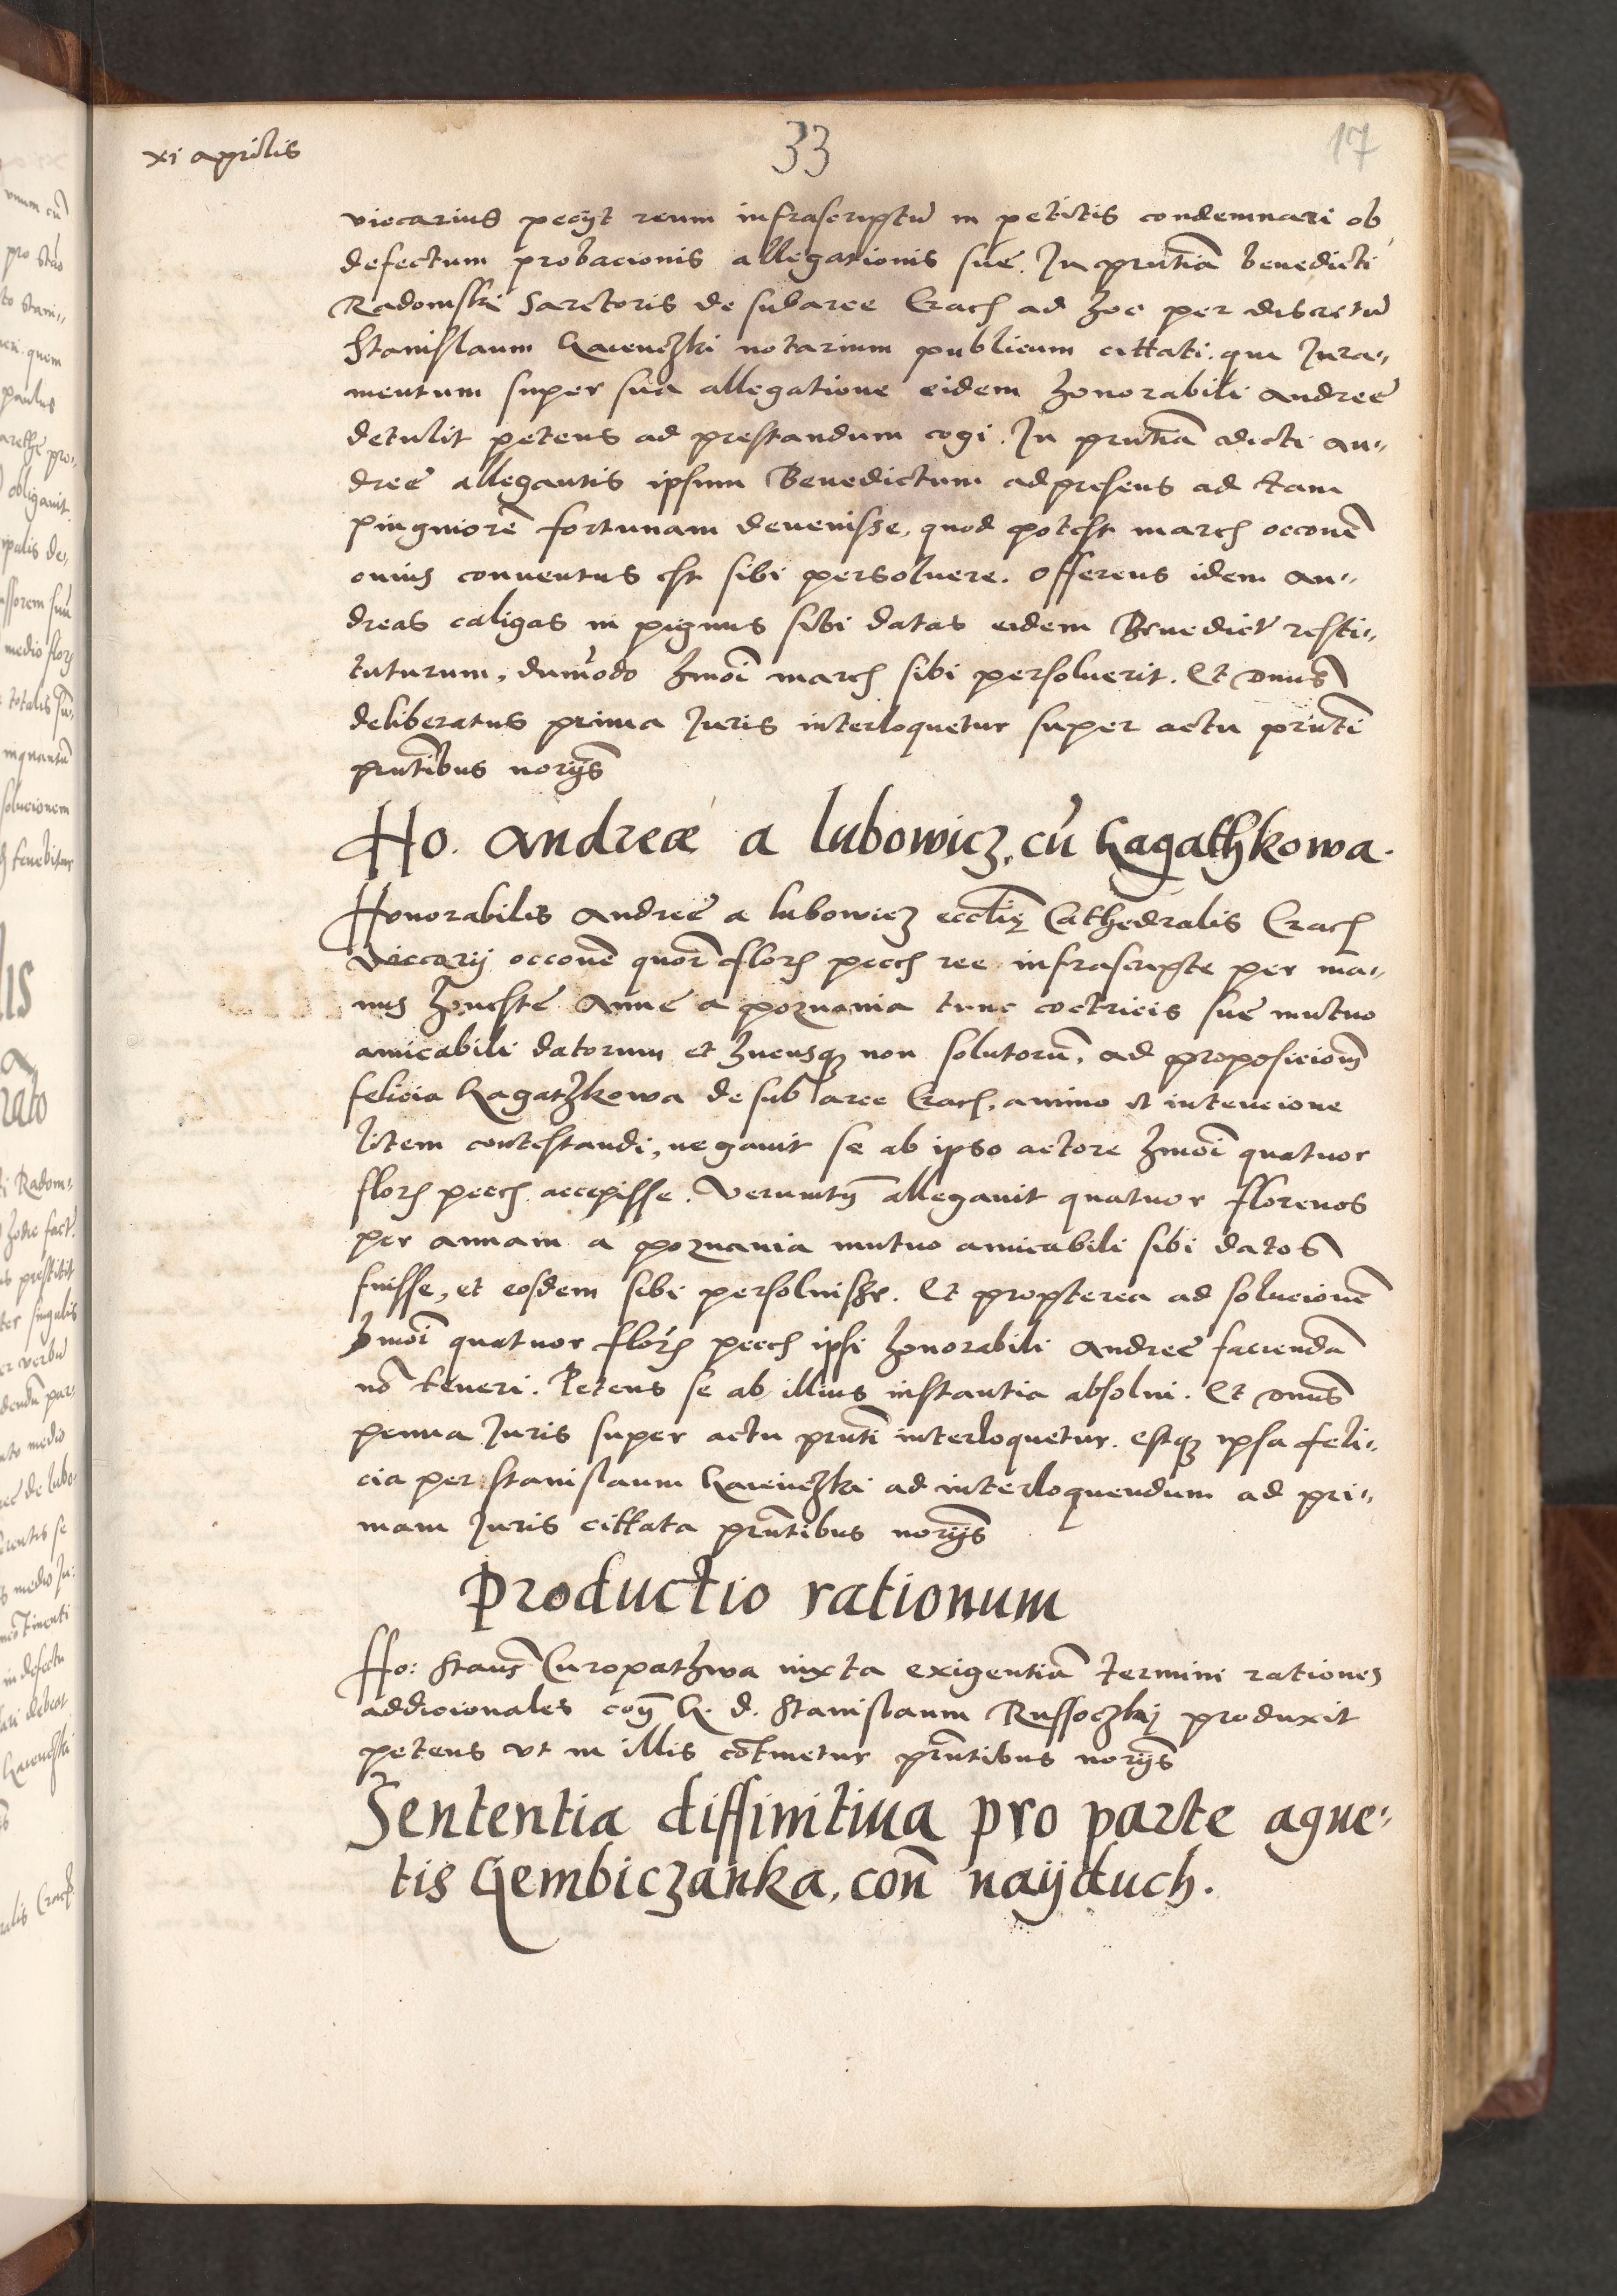 xi aprilis
33
17
viccarius peciyt reum infrascriptū in petitis condemnari ob
defectum probacionis allegationis sue. In pn̄tia benedicti
Radomski Sarctoris de subarce Crac̄ ad hoc per discretū
Stanislaum Kaienczki notarium publicum cittati. qui Jura-
mentum super sua allegatione eidem honorabili Andree
detulit petens ad prestandum cogi. In pn̄tia dicti An-
dree allegantis ipsum Benedictum ad presens ad tam
pingniorē fortunam devenisse, quod potest marcḥ occonē
cuius conventus est sibi persolvere. Offerens idem An-
dreas caligas in pignus sibi datas eidem Benedicto resti-
tuturum, dum̄odo hm̄oi marcḥ sibi persoluerit. Et dnus
deliberatus prima Juris interloquetur super actu pn̄ti
pn̄tibus norijs
Ho. Andreæ a lubowicz, cū Kagathkowa.
Honorabilis Andree a lubowicz eccl̄ię Cathedralis Crac̄
Viccarij occonē quor̄ flor̄ pecc̄ ree infrascripte per ma-
nus honeste Anne a poznania tunc coctricis sue mutuo
amicabili datorum et hucusqȝ non solutorū, ad proposicion̄
felicia Kagathkowa de sub arce Crac̄, animo et intencione
litem contestandi, negauit se ab ipso actore hm̄oi quatuor
flor̄ pecc̄ accepisse. Verumtn̄ allegauit quatuor florenos
per annam a poznania mutuo amicabili sibi datos
fuisse, et eosdem sibi persoluisse. Et propterea ad solucionē
hm̄oi quatuor flor̄ pecc̄ ipsi honorabili Andree faciendā
nō teneri. Petens se ab illius instantia absolui. Et dnus
prima Juris super actu pn̄ti interloquetur. estqȝ ipsa feli-
cia per Stanislaum Kaienczki ad interloquendum ad pri-
mam Juris cittata pn̄tibus norijs
Productio rationum
Ho: Stan̄s Curopathwa iuxta exigentiā termini rationes
addicionales con̄ G. d. Stanislaum Russoczkij produxit
petens vt in illis con̄tinetur pn̄tibus norijs
Sententia diffinitiua pro parte agne-
tis Gembiczanka, con̄ nayduch.